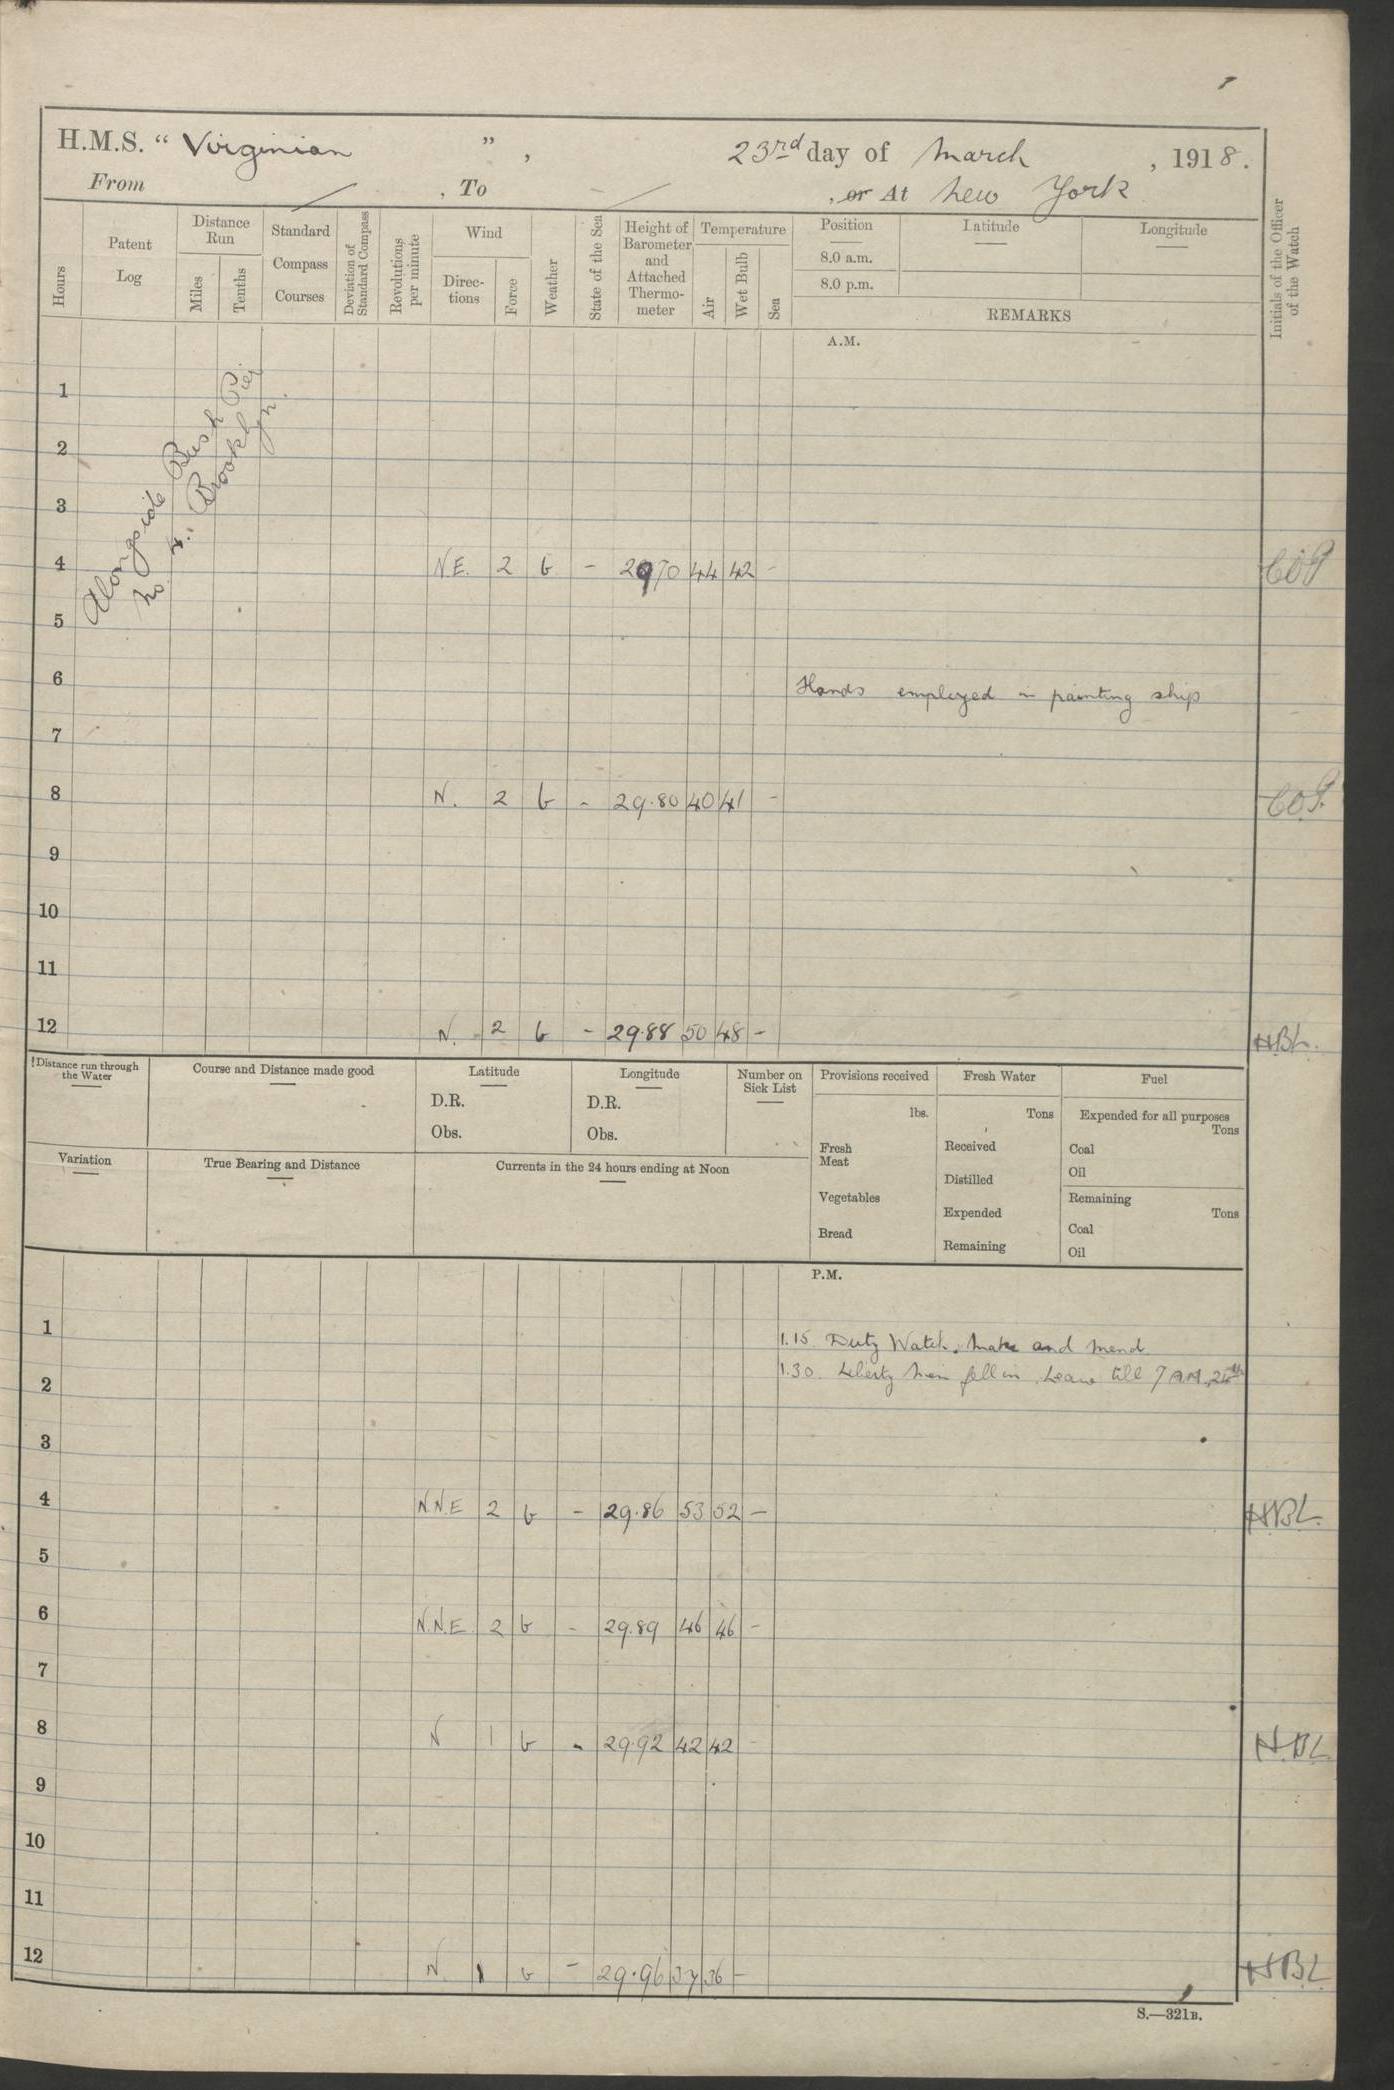 H.M.S. “ Virginian ” , 23rd day of March , 1918.
From , To , or At New York
Hours
Patent Log
Distance Run
Miles
Tenths
Standard Compass Courses
Deviation of Standard Compass
Revolutions per minute
Wind
Direc-tions
Force
Weather
State of the Sea
Height of Barometer and Attached Thermo-meter
Temperature
Air
Wet Bulb
Sea
Position
8.0 a.m.
8.0 p.m.
Latitude
Longitude
REMARKS
Initials of the Officer of the Watch
A.M.
Alongside Bush Pier
No. 4. Brooklyn.
1
2
3
4 NE. 2 b - 2970 44 42 -
5
6 Hands employed in painting ship
7
8 N. 2 b - 29.80 40 41 -
9
10
11
12 N. 2 b - 29.88 50 48 - HBL.
! Distance run through the Water
Course and Distance made good
Latitude
D.R.
Obs.
Longitude
D.R.
Obs.
Number on Sick List
Provisions received
lbs.
Fresh Meat
Vegetables
Bread
Fresh Water
Tons
Received
Distilled
Expended
Remaining
Fuel
Expended for all purposes
Tons
Coal
Oil
Remaining
Tons
Coal
Oil
Variation
True Bearing and Distance
Currents in the 24 hours ending at Noon
P.M.
1 1.15 Duty Watch. Make and mend
2 1.30. Liberty men fell in. Leave till 7 AM 24th
3
4 N.N.E 2 b - 29.86 53 52 - HBL.
5
6 N.N.E. 2 b - 29.89 46 46 -
7
8 N 1 b - 29.92 42 42 - H.BL
9
10
11
12 N. 1 b - 29.96 37 36 - HBL
S.—321B.